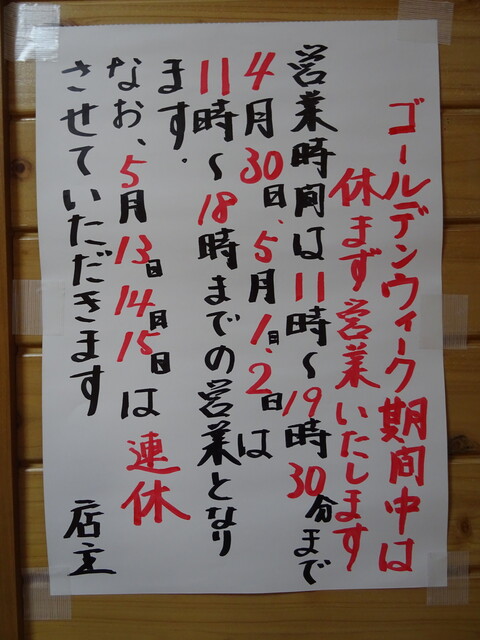 ゴールデンウィーク期間中は
休まず営業いたします
営業時間は11時〜19時30分まで
4月30日、5月1日、2日は
11時〜18時までの営業となり
ます.
なお、5月13日14日15日は連休
させていただきます
店主